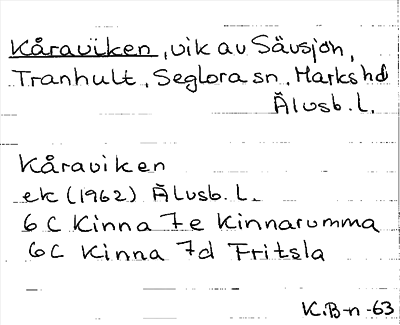 Kåraviken, vik av Sävsjön,
Tranhult, Seglora sn, Marks hd
Älvsb. L.
Kåraviken
ek (1962) Älvsb. L.
6 C Kinna 7e Kinnarumma
6C Kinna 7d Fritsla
K.B-n -63